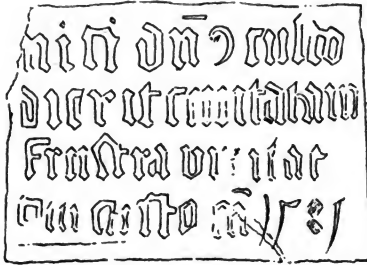 niſi dn̄ꝰ cuſto
dierit ciuitatam
Fruſtra vigilat
Qui cuſto